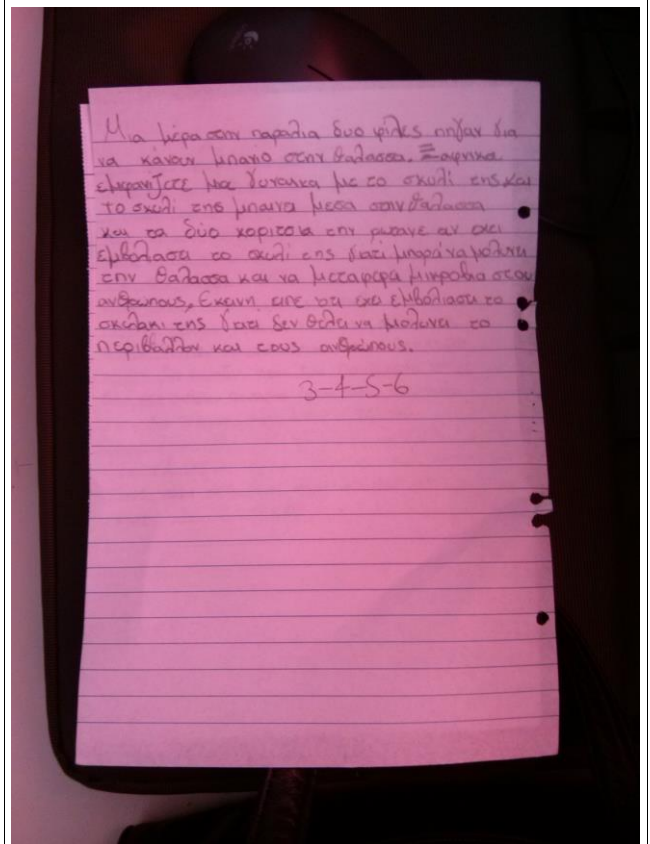 Μια μέρα στην παραλία δυο φίλες πηγαν για
να κάνουν μπανιο στην θαλασσα. Ξαφηκα
εμφανιζετε μια γυναικα με το σκυλι της και
το σκυλι της μπαινα μεσα στην θαλασσα
και τα δύο κοριτσια την ρωτανε αν εχει
εμβολιασει το σκυλι της γιατι μπορά να μολυνα
την θαλασσα και να μεταφερα μικροβια στου
ανθρωπους, Εκεινη ειπε οτι εχει εμβολιασει το
σκυλακι της γιατι δεν θελει να μολυνα το
περιβαλλον και τους ανθρωπους.
3-4-5-6